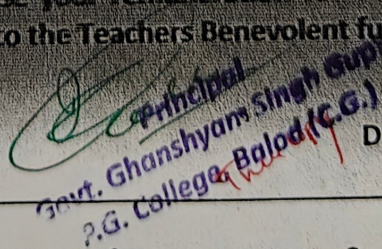 to the Teachers Benevolent fu
Principal
Govt. Ghanshyam Singh Gup
P.G. College, Balod (C.G.)
D